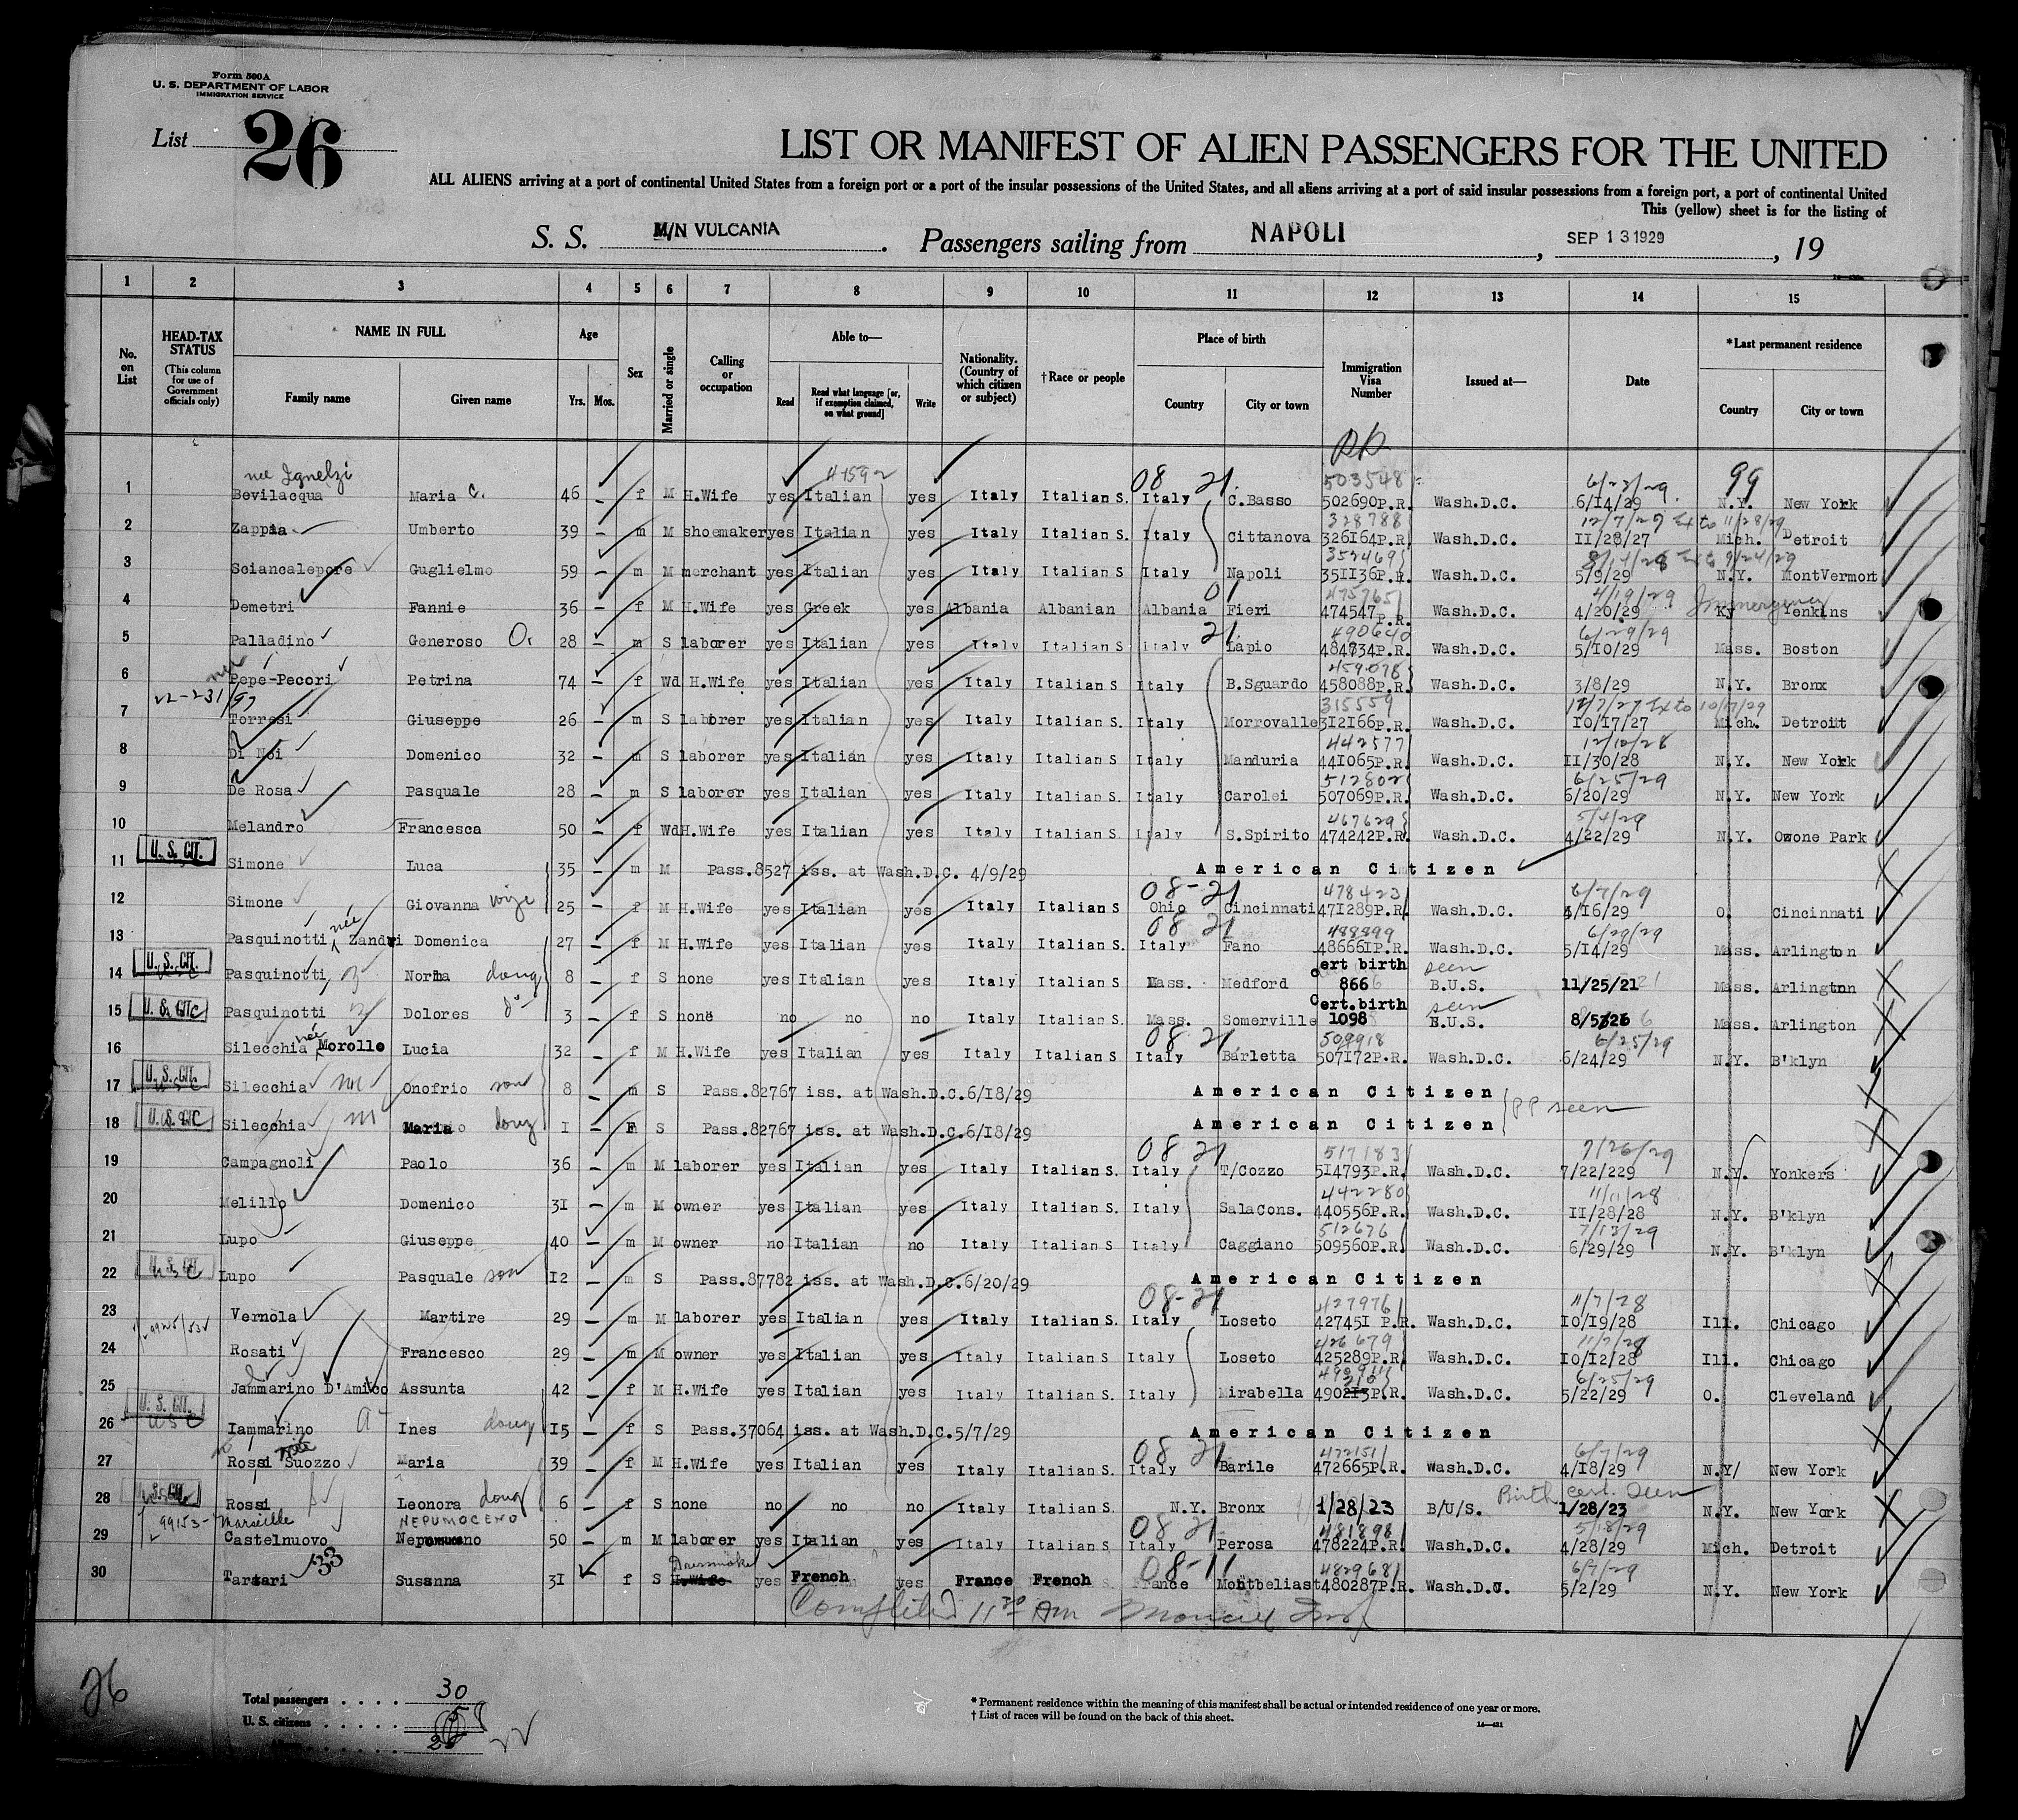 Form 500A
U. S. DEPARTMENT OF LABOR
IMMIGRATION SERVICE
List 26
LIST OR MANIFEST OF ALIEN PASSENGERS FOR THE UNITED
ALL ALIENS arriving at a port of continental United States from a foreign port or a port of the insular possessions of the United States, and all aliens arriving at a port of said insular possessions from a foreign port, a port of continental United
This (yellow) sheet is for the listing of
S. S. M/N VULCANIA. Passengers sailing from NAPOLI, SEP 13 1929, 19
1 2 3 4 5 6 7 8 9 10 11 12 13 14 15
No. on List
HEAD-TAX STATUS (This column for use of Government officials only)
NAME IN FULL
Family name
Given name
Age
Yrs. Mos.
Sex
Married or single
Calling or occupation
Able to—
Read
Read what language [or, if exemption claimed, on what ground]
Write
Nationality. (Country of which citizen or subject)
†Race or people
Place of birth
Country
City or town
Immigration Visa Number
Issued at—
Date
*Last permanent residence
Country
City or town
nee Ignelzi 503548 6/23/29 99
1 Bevilacqua Maria C. 46 – f M H.Wife yes Italian yes Italy Italian S. 08 21 Italy C.Basso 502690P.R. Wash.D.C. 6/14/29 N.Y. New York
328788 12/7/27 Ext to 11/28/29
2 Zappia Umberto 39 – m M shoemaker yes Italian yes Italy Italian S. Italy Cittanova 326164P.R. Wash.D.C. 11/28/27 Mich. Detroit
352469 8/14/28 Ext to 9/24/29
3 Sciancalepore Guglielmo 59 – m M merchant yes Italian yes Italy Italian S Italy Napoli 351136P.R. Wash.D.C. 5/9/29 N.Y. MontVermont
01 475765 4/19/29
4 Demetri Fannie 36 – f M H.Wife yes Greek yes Albania Albanian Albania Fieri 474547P.R. Wash.D.C. 4/20/29 Ky Yenkins
21 490640 6/29/29
5 Palladino Generoso O. 28 – m S laborer yes Italian yes Italy Italian S Italy Lapio 484734P.R. Wash.D.C. 5/10/29 Mass. Boston
459078
6 Pepe-Pecori Petrina 74 – f Wd H.Wife yes Italian yes Italy Italian S Italy B.Sguardo 458088P.R. Wash.D.C. 3/8/29 N.Y. Bronx
315559 12/7/27 Ext to 10/17/29
7 Torresi Giuseppe 26 – m S laborer yes Italian yes Italy Italian S. Italy Morrovalle 312166P.R. Wash.D.C. 10/17/27 Mich. Detroit
442577 12/10/28
8 Di Noi Domenico 32 – m S laborer yes Italian yes Italy Italian S. Italy Manduria 441065P.R. Wash.D.C. 11/30/28 N.Y. New York
512802 6/25/29
9 De Rosa Pasquale 28 – m S laborer yes Italian yes Italy Italian S. Italy Carolei 507069P.R. Wash.D.C. 6/20/29 N.Y. New York
467629 5/4/29
10 Melandro Francesca 50 – f Wd H.Wife yes Italian yes Italy Italian S. Italy S.Spirito 474242P.R. Wash.D.C. 4/22/29 N.Y. Ozone Park
11 U. S. CIT. Simone Luca 35 – m M Pass.8527 iss. at Wash.D.C. 4/9/29 American Citizen
08-21 478423 6/7/29
12 Simone Giovanna wife 25 – f M H.Wife yes Italian yes Italy Italian S Ohio Cincinnati 471289P.R. Wash.D.C. 4/16/29 O. Cincinnati
08 21 488999 6/29/29
13 Pasquinotti née Zandri Domenica 27 – f M H.Wife yes Italian yes Italy Italian S. Italy Fano 486661P.R. Wash.D.C. 5/14/29 Mass. Arlington
Cert birth seen
14 U. S. CIT. Pasquinotti Norma daug 8 – f S none yes Italian yes Italy Italian S. Mass. Medford 866 B.U.S. 11/25/21 Mass. Arlington
Cert.birth seen
15 U. S. CIT. Pasquinotti Dolores do 3 – f S none no no no Italy Italian S. Mass. Somerville 1098 B.U.S. 8/5/26 Mass. Arlington
08 21 509918 6/25/29
16 Silecchia née Morollo Lucia 32 – f M H.Wife yes Italian yes Italy Italian S Italy Barletta 507172P.R. Wash.D.C. 6/24/29 N.Y. B'klyn
17 U. S. CIT. Silecchia Onofrio son 8 – m S Pass.82767 iss. at Wash.D.C.6/18/29 American Citizen
PP seen
18 U. S. CIT. Silecchia Maria daug 1 – F S Pass.82767 iss. at Wash.D.C.6/18/29 American Citizen
08 21 517183 7/26/29
19 Campagnoli Paolo 36 – m M laborer yes Italian yes Italy Italian S. Italy T/Cozzo 514793P.R. Wash.D.C. 7/22/229 N.Y. Yonkers
442280 11/11/28
20 Melillo Domenico 31 – m M owner yes Italian yes Italy Italian S. Italy SalaCons. 440556P.R. Wash.D.C. 11/28/28 N.Y. B'klyn
512676 7/13/29
21 Lupo Giuseppe 40 – m M owner no Italian no Italy Italian S Italy Caggiano 509560P.R. Wash.D.C. 6/29/29 N.Y. B'klyn
22 U. S. CIT Lupo Pasquale son 12 – m S Pass.87782 iss. at Wash.D.C.6/20/29 American Citizen
08-21 427976 11/7/28
23 Vernola Martire 29 – m M laborer yes Italian yes Italy Italian S. Italy Loseto 427451 P.R. Wash.D.C. 10/19/28 Ill. Chicago
426679 11/7/28
24 Rosati Francesco 29 – m M owner yes Italian yes Italy Italian S Italy Loseto 425289P.R. Wash.D.C. 10/12/28 Ill. Chicago
6/25/29
25 Jammarino D'Amico Assunta 42 – f M H.Wife yes Italian yes Italy Italian S Italy Mirabella 490213P.R. Wash.D.C. 5/22/29 O. Cleveland
26 U. S. CIT. Iammarino Ines daug 15 – f S Pass.37064 iss. at Wash.D.C.5/7/29 American Citizen
née 08 21 472151 6/7/29
27 Rossi Suozzo Maria 39 – f M H.Wife yes Italian yes Italy Italian S. Italy Barile 472665P.R. Wash.D.C. 4/18/29 N.Y/ New York
Birth cert. Seen
28 U. S. CIT. Rossi Leonora daug 6 – f S none no no no Italy Italian S. N.Y. Bronx 1/28/23 B/U/S. 1/28/23 N.Y. New York
99153 Marseille NEPUMOCENO 08 21 481898 5/18/29
29 Castelnuovo 50 – m M laborer yes Italian yes Italy Italian S Italy Perosa 478224P.R. Wash.D.C. 4/28/29 Mich. Detroit
33 Dressmaker 08-11 482968 6/7/29
30 Tartari Susanna 31 f S H.Wife yes French yes France French France Montbeliast 480287P.R. Wash.D.C. 5/2/29 N.Y. New York
Completed 11 30 AM
26
Total passengers . . . . 30
U. S. citizens . . . . . 8
22
* Permanent residence within the meaning of this manifest shall be actual or intended residence of one year or more.
† List of races will be found on the back of this sheet.
14—431